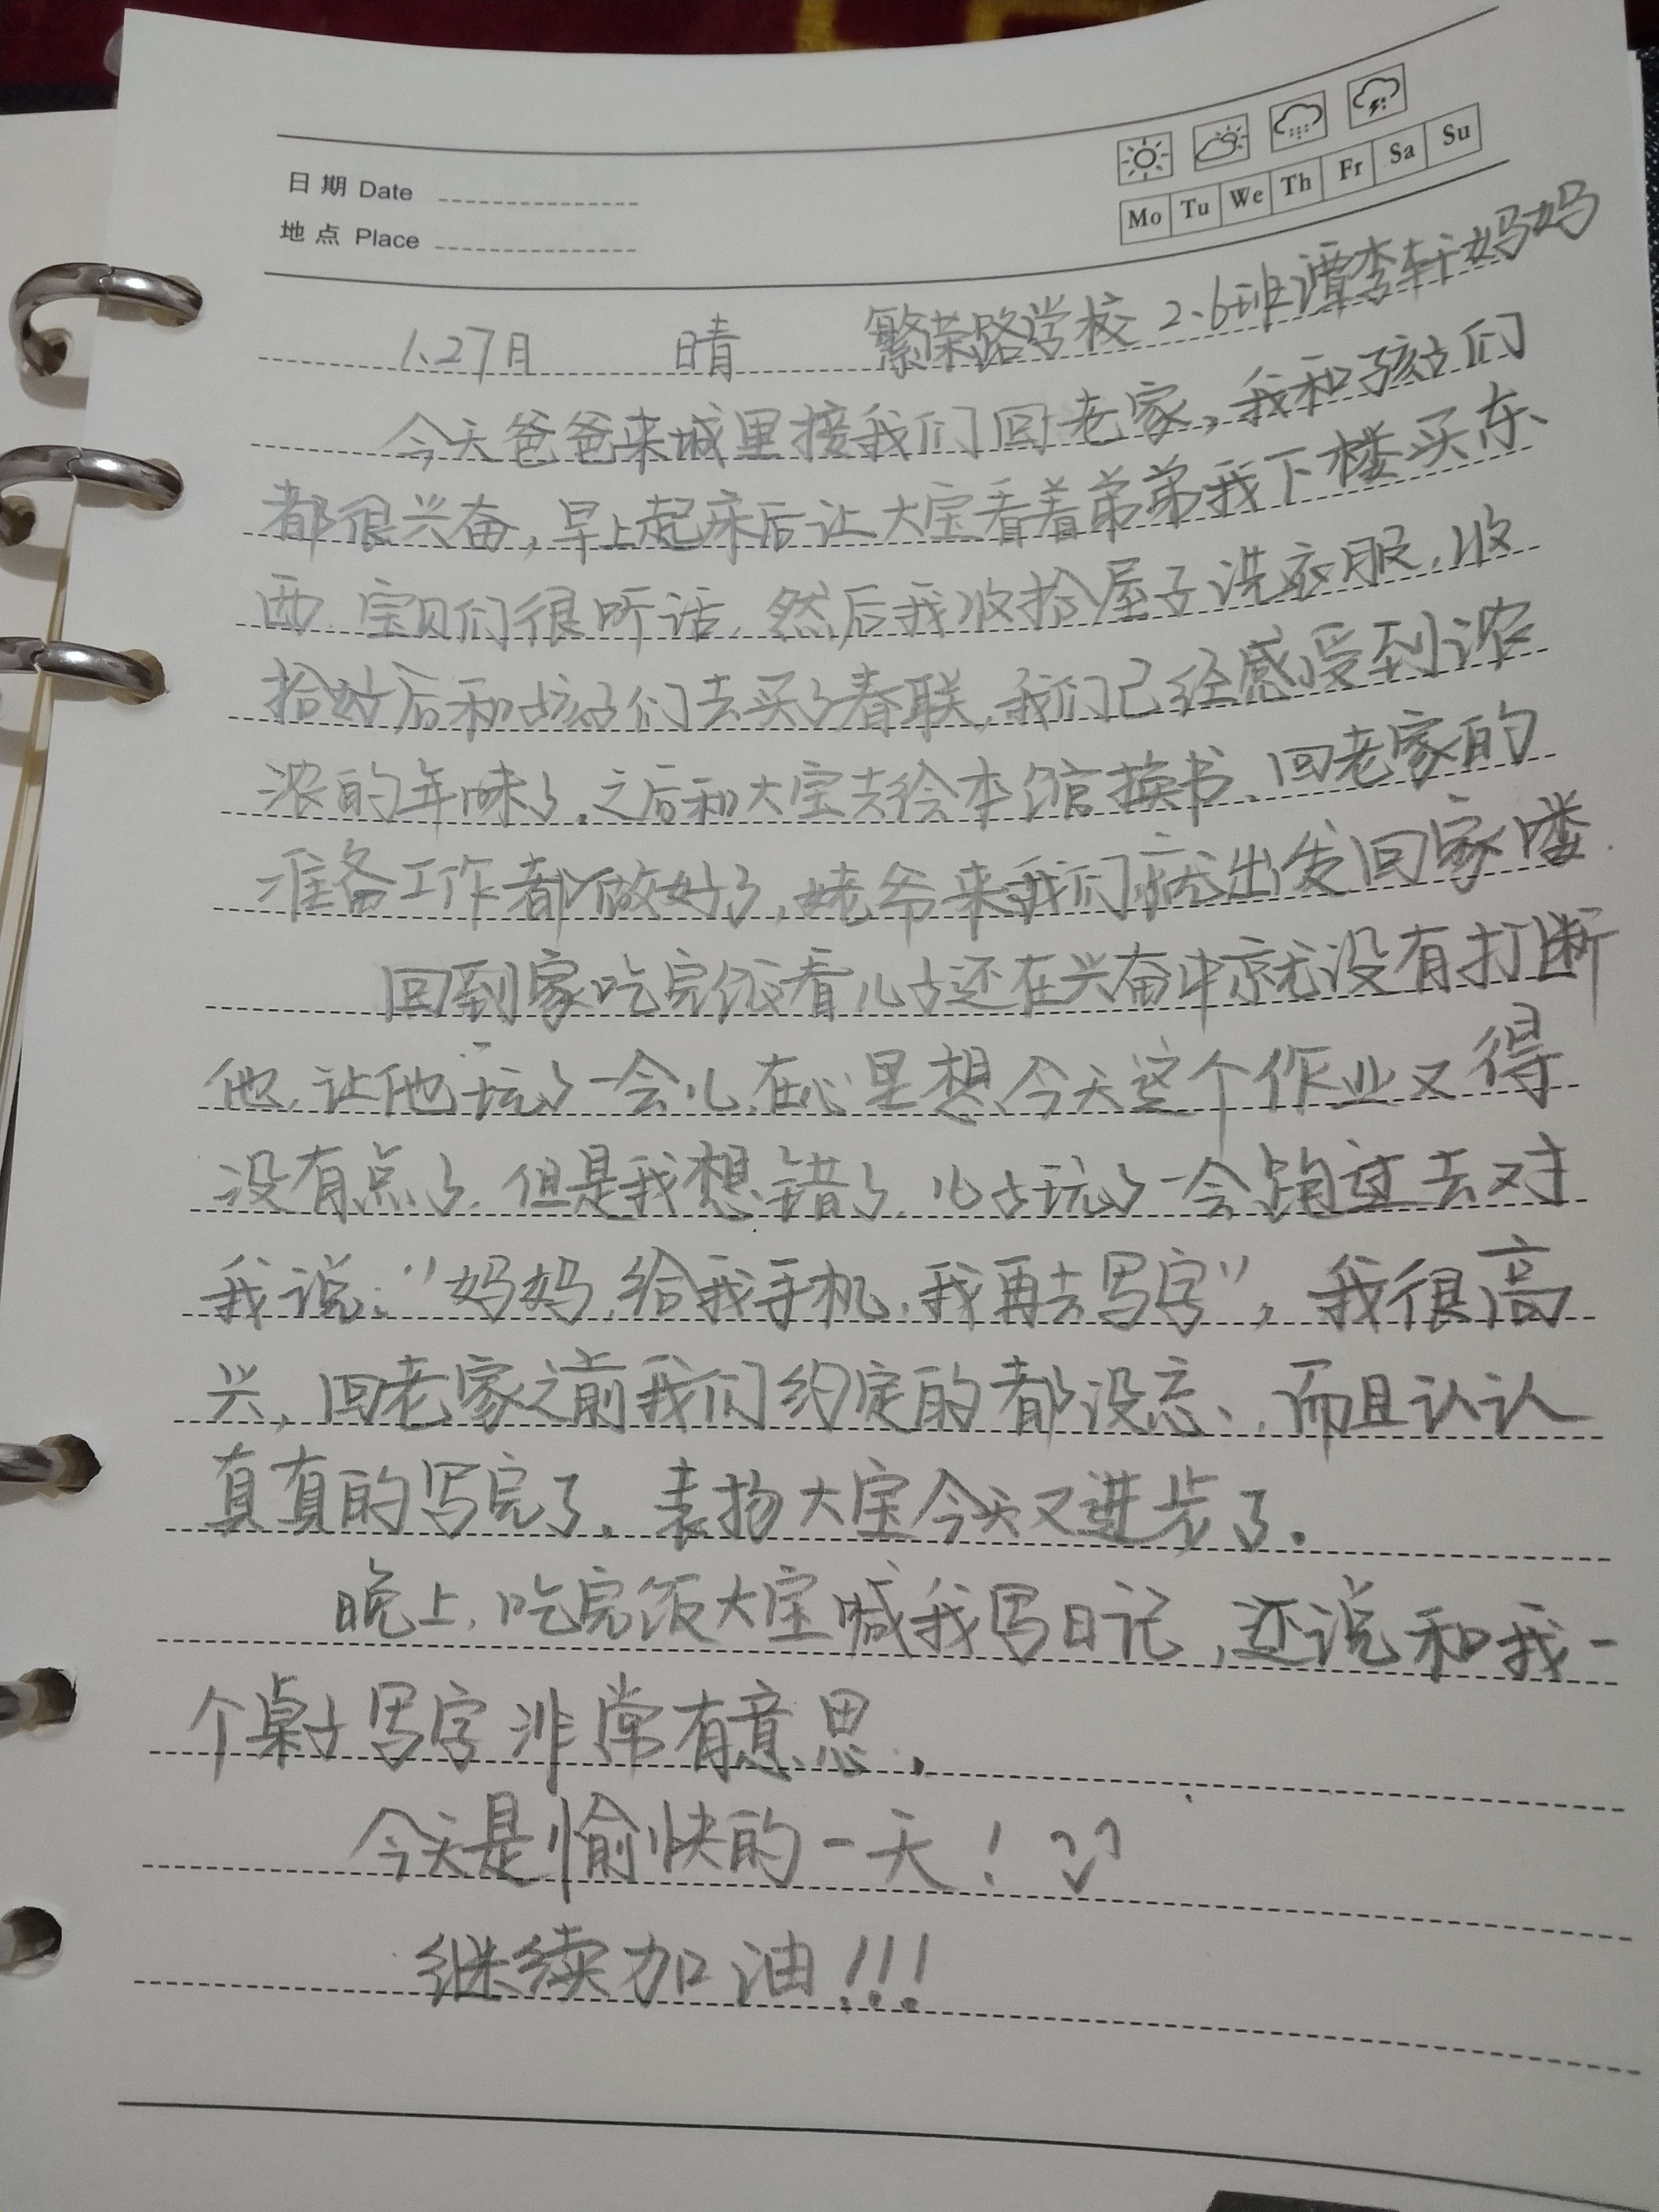 日期 Date
地点 Place
Mo Tu We Th Fr Sa Su
1、27月 晴 繁荣路学校 2、6班谭李轩妈妈
今天爸爸来城里接我们回老家，我和孩子们
都很兴奋，早上起来后让大宝看着弟弟我下楼买东
西，宝贝们很听话，然后我收拾屋子洗衣服，收
拾好后和孩子们去买了春联，我们已经感受到浓
浓的年味了，之后和大宝去绘本馆换书、回老家的
准备工作都做好了，姥爷来我们就出发回家喽.
回到家吃完饭看儿子还在兴奋中就没有打断
他，让他玩了一会儿，在心里想今天这个作业又得
没有点了，但是我想错了，儿子玩了一会跑过去对
我说：“妈妈，给我手机，我再去写字”，我很高
兴，回老家之前我们约定的都没忘、，而且认认
真真的写完了，表扬大宝今天又进步了.
晚上，吃完饭大宝喊我写日记，还说和我一
个桌子写字非常有意思，
今天是愉快的一天！
继续加油！！！